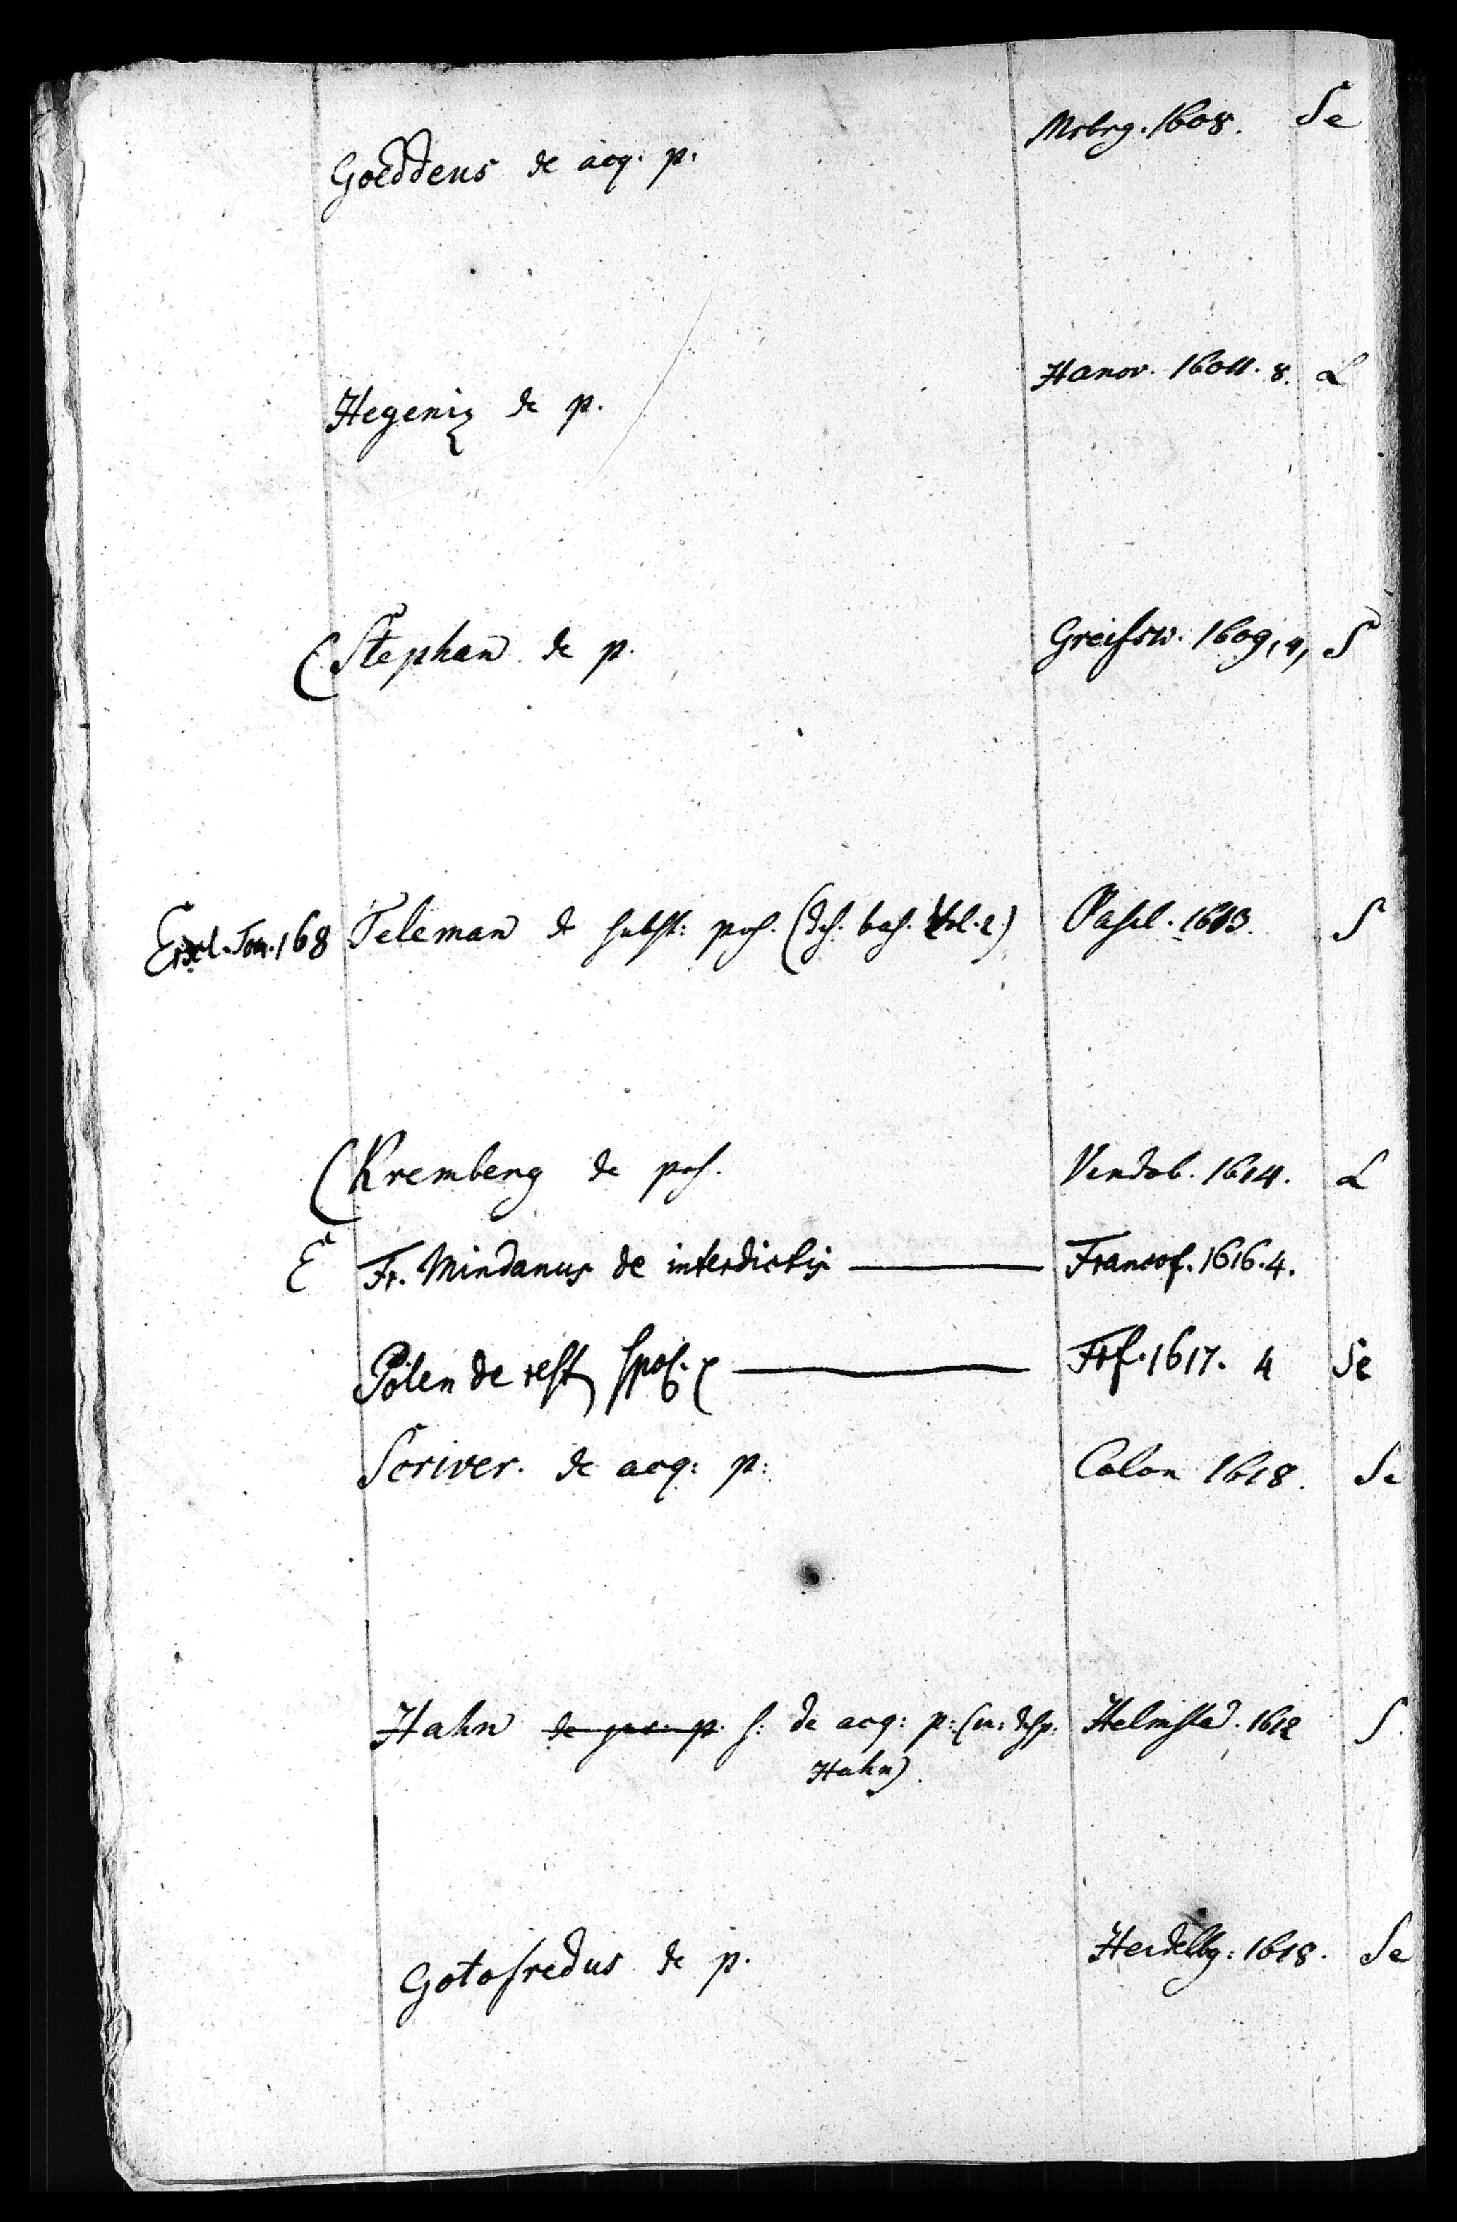 Goeddeus de acq. p. Mrbrg. 1608. Se
Hegeniz de p. Hanov. 16011. 8. L
(Stephan de p. Greifsw. 1609, 4, S
168 Teleman de subst: poss. ( bas. Vol. 2) Basel. 1613. S
(Kremberg de poss. Vindob. 1614. L
E Fr. Mindanus de interdictis — Francof. 1616. 4.
Polen de rest spol. — Frf. 1617. 4 Se
Scriver. de acq: p: Colon 1618. Se
Hahn s: de acq: p: Helmstad. 1618 S.
Hahn).
Gotofredus de p. Heidelbg: 1618. Se